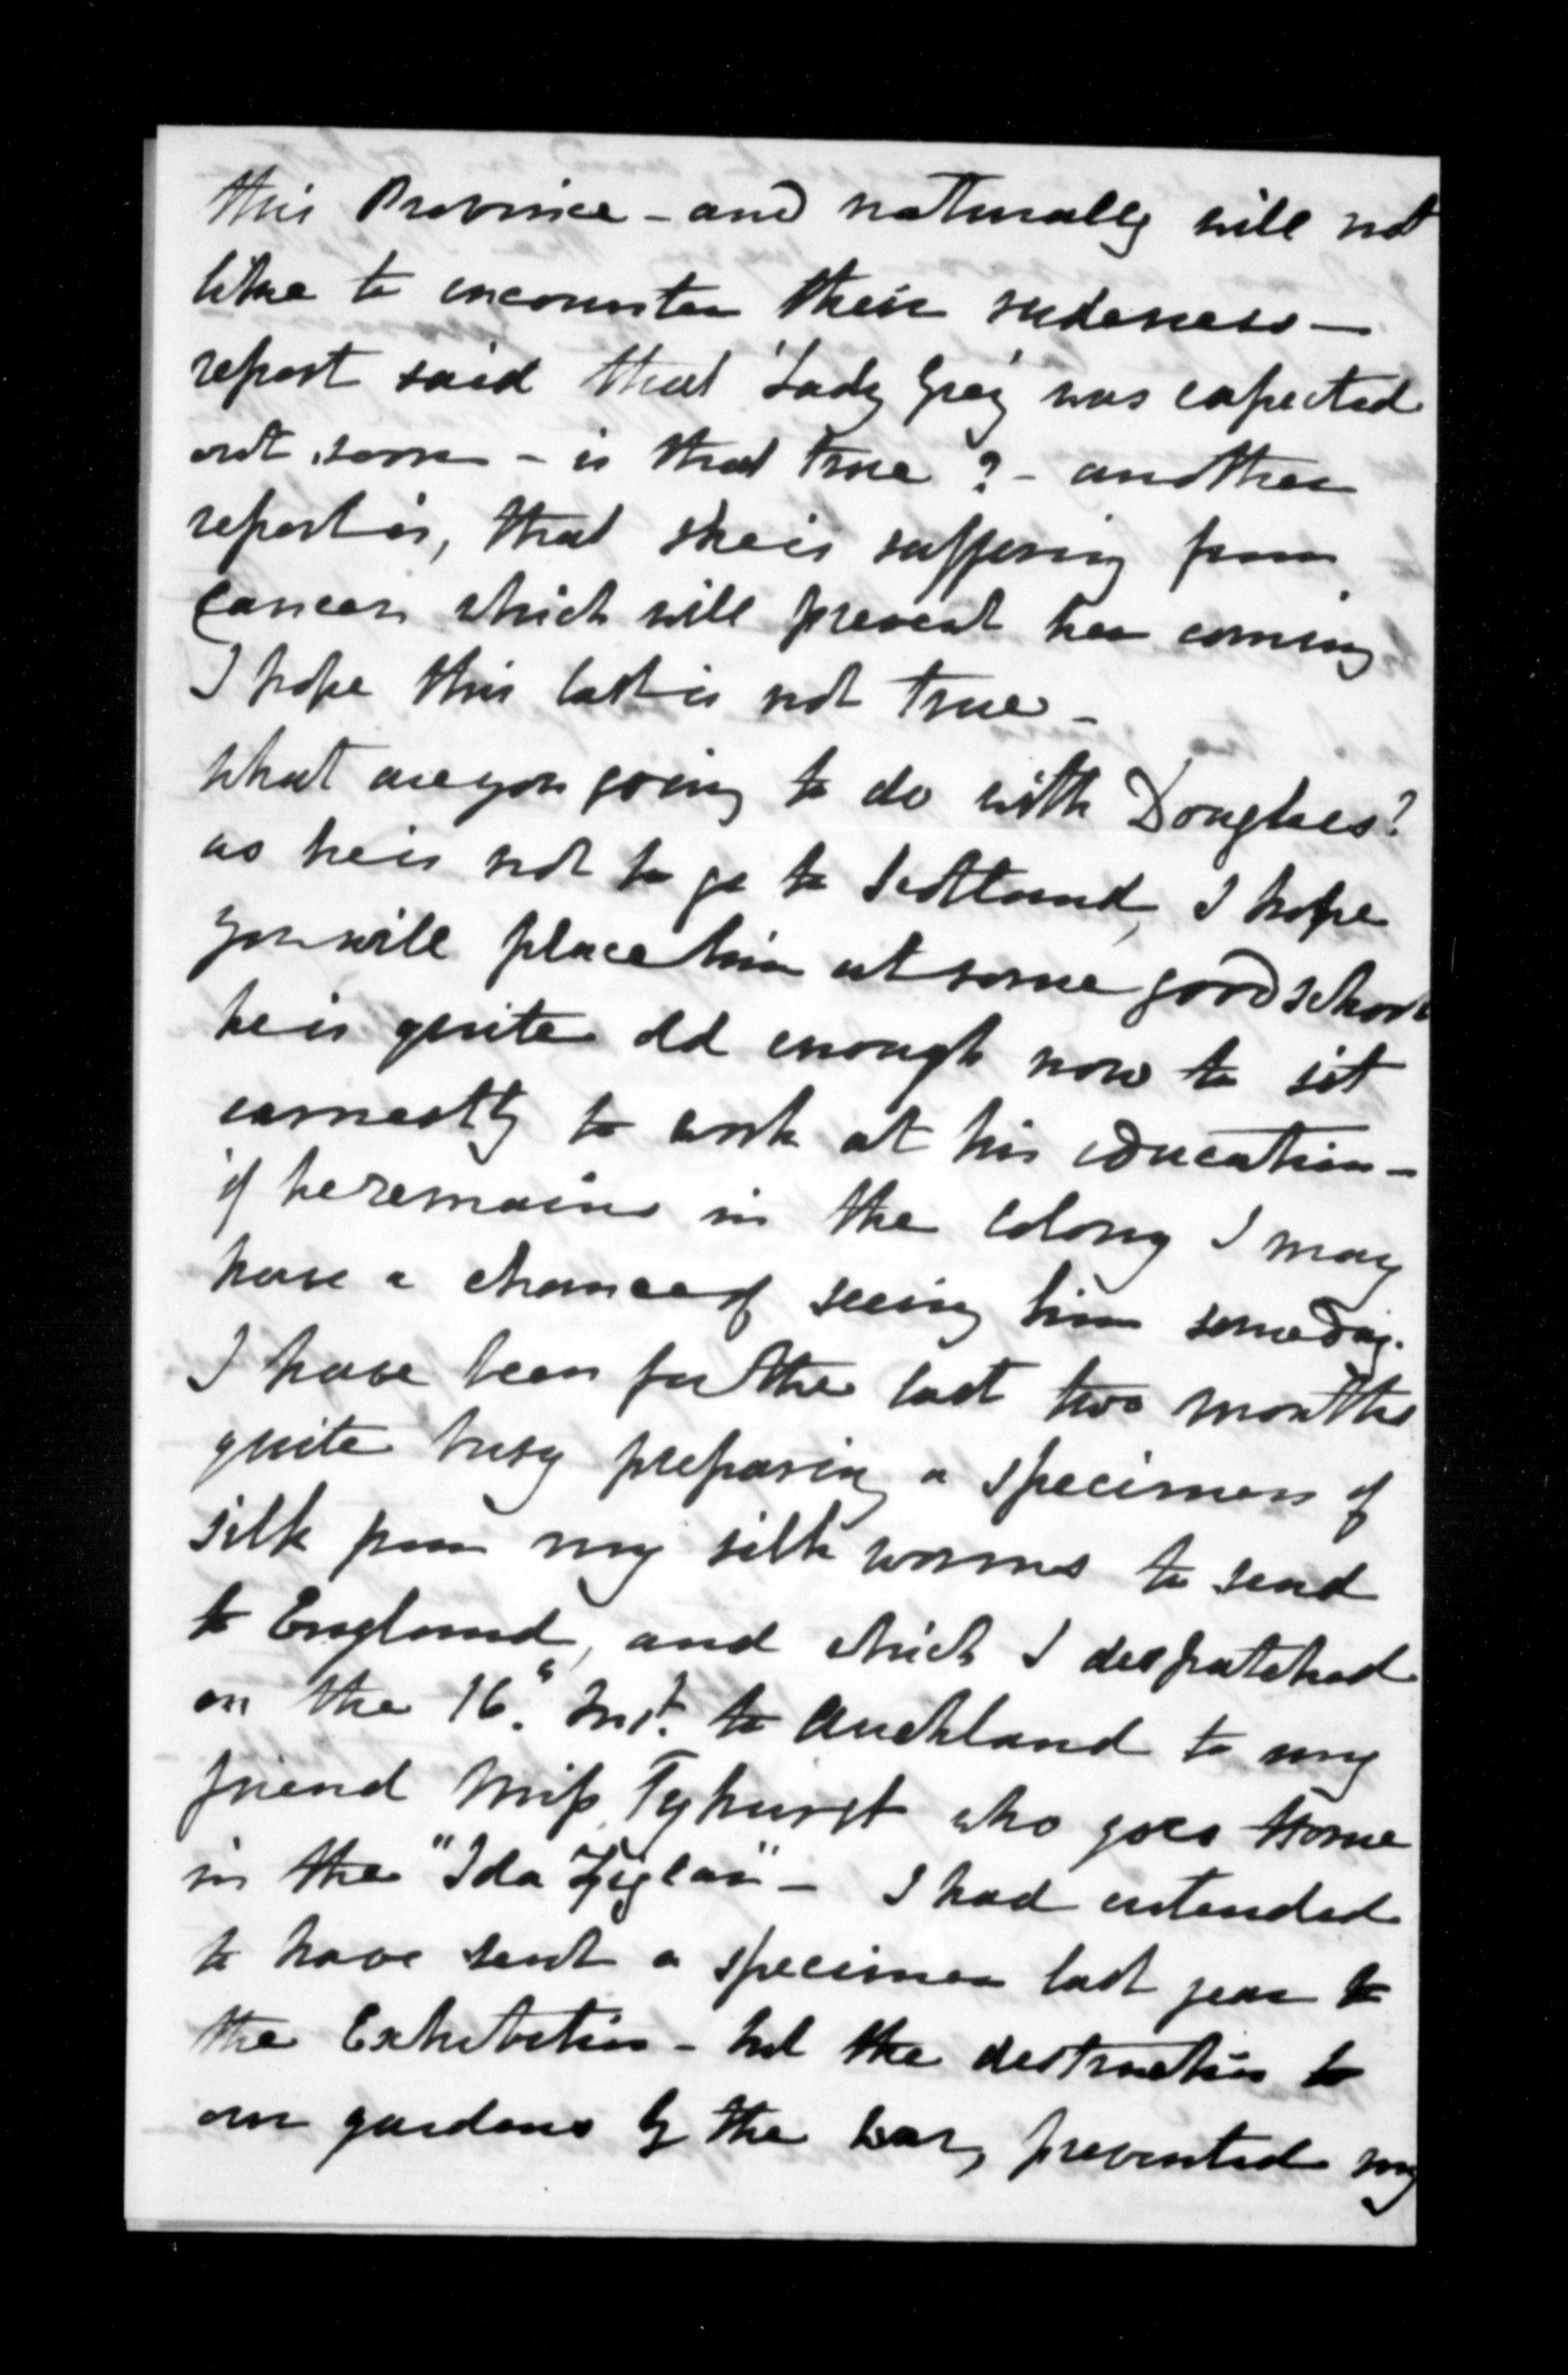 this Province - and naturally will not
like to encounter their rudeness -
report said that 'Lady Grey' was expected
out soon - is that true ? - another
report is, that she is suffering from
cancer which will prevent her coming
I hope this last is not true -
What are you going to do with Douglas?
as he is not to go to Scotland, I hope
you will place him at some good school
he is quite old enough now to sit
earnestly to work at his education -
if he remains in the colony I may
have a chance of seeing him someday.
I have been for the last two months
quite busy preparing a specimen of
silk from my silk worms to send
to England, and which I despatched
on the 16." Inst. to Auckland to my
friend Miss Tyhurst who goes Home
in the "Ida Ziglar" - I had intended
to have sent a specimen last year to
the Exhibition - but the destruction to
our gardens by the war, prevented my